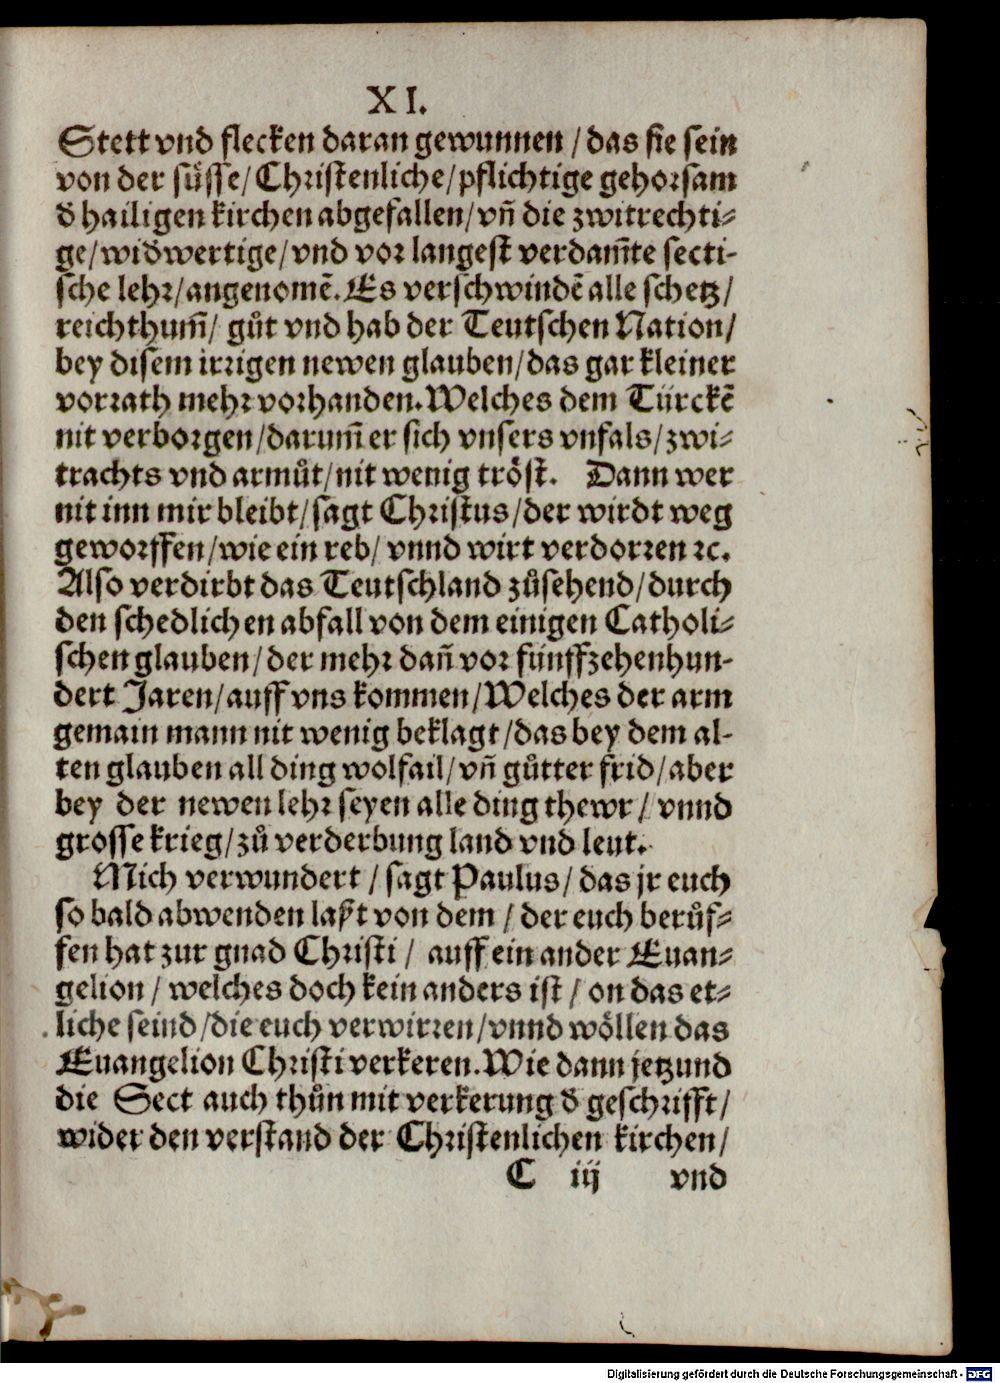 XI.
Stett vnd flecken daran gewunnen / das sie sein
von der süsse / Christenliche / pflichtige gehorsam
d̕ hailigen kirchen abgefallen / vn̄ die zwitrechti⸗
ge / wid̕wertige / vnd vor langest verdam̄te secti-
sche lehr / angenomē. Es verschwindē alle schetz /
reichthum̄ / gůt vnd hab der Teutschen Nation /
bey disem irrigen newen glauben / das gar kleiner
vorrath mehr vorhanden. Welches dem Türckē
nit verborgen / darum̄ er sich vnsers vnfals / zwi⸗
trachts vnd armůt / nit wenig tröst. Dann wer
nit inn mir bleibt / sagt Christus / der wirdt weg
geworffen / wie ein reb / vnnd wirt verdorren ꝛc.
Also verdirbt das Teutschland zůsehend / durch
den schedlichen abfall von dem einigen Catholi⸗
schen glauben / der mehr dan̄ vor fünffzehenhun-
dert Jaren / auff vns kommen / Welches der arm
gemain mann nit wenig beklagt / das bey dem al-
ten glauben all ding wolfail / vn̄ gůtter frid / aber
bey der newen lehr seyen alle ding thewr / vnnd
grosse krieg / zů verderbung land vnd leut.
Mich verwundert / sagt Paulus / das jr euch
so bald abwenden laßt von dem / der euch berůf⸗
fen hat zur gnad Christi / auff ein ander Euan⸗
gelion / welches doch kein anders ist / on das et⸗
liche seind / die euch verwirren / vnnd wöllen das
Euangelion Christi verkeren. Wie dann jetzund
die Sect auch thůn mit verkerung d̕ geschrifft /
wider den verstand der Christenlichen kirchen /
C iij vnd
Digitalisierung gefördert durch die Deutsche Forschungsgemeinschaft - DFG